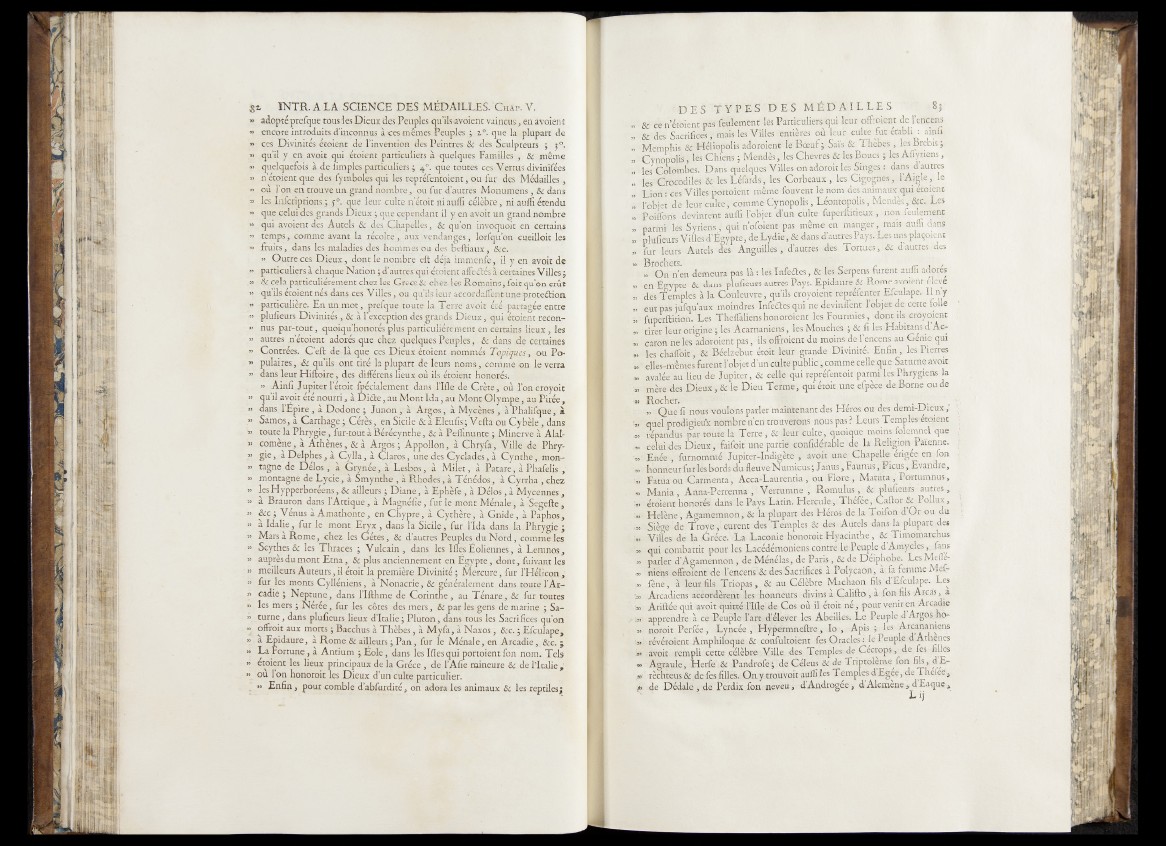 82 INTR. A LA SCIENCE DES MÉDAILLES. CHAP. V.
» adopté presque tous les Dieux des Peuples qu'ils avoient vaincus, en avoient
» encore introduits d'inconnus à ces mêmes Peuples ; 2°. que la plupart de
» ces Divinités étoient de l'invention des Peintres & des Sculpteurs ; 3°.
» qu'il y en avoit qui étoient particuliers à quelques Familles , & même
» quelquefois à de simples particuliers ; 4°. que toutes ces Vertus divinisées
» n'étoient que des symboles qui les représentoient, ou sur des Médailles ,
» où l'on en trouve un grand nombre, ou sur d'autres Monumens , & dans
» les Inscriptions ; 5°. que leur culte n'étoit ni aussi célèbre , ni aussi étendu
» que celui des grands Dieux ; que cependant il y en avoit un grand nombre
» qui avoient des Autels & des Chapelles, & qu'on invoquoit en certains
» temps , comme avant la récolte , aux vendanges , lorsqu'on cueilloit les
» fruits , dans les maladies des hommes ou des bestiaux , &c.
» Outre ces Dieux , dont le nombre est déja immense, il y en avoit de
» particuliers à chaque Nation ; d'autres qui étoient affectés à certaines Villes ;
» & cela particuliérement chez les Grecs & chez les Romains, soit qu'on crût
» qu'ils étoient nés dans ces Villes , ou qu'ils leur accordassent une protection
» particulière. En un mot , presque toute la Terre avoit été partagée entre
» plusieurs Divinités , & à l'exception des grands Dieux , qui étoient recon-
» nus par-tout , quoiqu'honorés plus particuliérement en certains lieux , les
» autres n'étoient adorés que chez quelques Peuples, & dans de certaines
» Contrées. C'est de là que ces Dieux étoient nommés Topiques, ou Po-
» pulaires, & qu'ils ont tiré la plupart de leurs noms, comme on le verra
» dans leur Histoire , des différens lieux où ils étoient honorés.
» Ainsi Jupiter l'étoit spécialement dans l'Isle de Crète, où l'on croyoit
» qu'il avoit été nourri , à Dicte, au Mont Ida, au Mont Olympe , au Pirée,
» dans l'Epire , à Dodone ; Junon , à Argos, à Mycènes , à Phalisque, à
» Samos, à Carthage ; Cérès, en Sicile & à Eleusis; Vesta ou Cybèle , dans
» toute la Phrygie, sur-tout à Bérécynthe, & à Pessinunte ; Minerve à Alal-
» comène , à Athènes, & à Argos ; Appollon, à Chrysa, Ville de Phry-
» gie , à Delphes, à Cylla, à Claros, une des Cyclades, à Cynthe, mon-
» tagne de Délos , à Grynée, à Lesbos, à Milet, à Patare, à Phaselis ,
» montagne de Lycie, à Smynthe , à Rhodes, à Ténédos, à Cyrrha , chez
» les Hypperboréens, & ailleurs ; Diane , à Ephèse , à Délos, à Mycennes ,
» à Brauron dans l'Attique , à Magnésie , sur le mont Ménale, à Segeste,
» &c ; Vénus à Amathonte, en Chypre, à Cythère, à Gnide, à Paphos,
» à Idalie, sur le mont Eryx, dans la Sicile , sur l'Ida dans la Phrygie ;
» Mars à Rome, chez les Gétes, & d'autres Peuples du Nord, comme les
» Scythes & les Thraces ; Vulcain , dans les Isles Éoliennes, à Lemnos,
» auprès du mont Etna, & plus anciennement en Egypte , dont, suivant les
» meilleurs Auteurs, il étoit la première Divinité ; Mercure, sur l'Hélicon ,
» sur les monts Cylléniens , à Nonacrie, & généralement dans toute l'Ar-
» cadie ; Neptune , dans l'Isthme de Corinthe, au Ténare, & sur toutes
» les mers ; Nérée, sur les côtes des mers, & par les gens de marine ; Sa-
» turne , dans plusieurs lieux d'Italie ; Pluton , dans tous les Sacrifices qu'on
» offroit aux morts ; Bacchus à Thèbes, à Mysa, à Naxos, &c. ; Esculape,
» à Epidaure, à Rome & ailleurs ; Pan, sur le Ménale, en Arcadie, &c. ;
» La Fortune , à Antium ; Eole, dans les Isles qui portoient son nom. Tels
» étoient les lieux principaux de la Gréce , de l'Asie mineure & de l'Italie,
» où l'on honoroit les Dieux d'un culte particulier.
» Enfin, pour comble d'absurdité, on adora les animaux & les reptiles ;
DES TYPES DES MÉDAILLES 83
» & ce n'étoient pas seulement les Particuliers qui leur offroient de l'encens
» & des Sacrifices , mais les Villes entières où leur culte fut établi : ainsi
» Memphis & Héliopolis adoroient le Bœuf ; Saïs & Thèbes , les Brebis ;
» Cynopolis, les Chiens ; Mendès, les Chevres & les Boucs ; les Assyriens ,
» les Colombes. Dans quelques Villes on adoroit les Singes : dans d'autres
» les Crocodiles & les Lésards, les Corbeaux , les Cigognes , l'Aigle, le
» Lion : ces Villes portoient même souvent le nom des animaux qui étoient
» l'objet de leur culte, comme Cynopolis , Léontopolis, Mendès, &c. Les
» Poissons devinrent aussi l'objet d'un culte superstitieux , non seulement
» parmi les Syriens , qui n'osoient pas même en manger , mais aussi dans
» plusieurs Villes d'Egypte, de Lydie, & dans d'autres Pays. Les uns plaçoient
» sur leurs Autels des Anguilles , d'autres des Tortues, & d'autres des
» Brochets.
» On n'en demeura pas là : les Insectes, & les Serpens furent aussi adorés
» en Egypte & dans plusieurs autres Pays. Epidaure & Rome avoient élevé
» des Temples à la Couleuvre, qu'ils croyoient représenter Esculape. Il n'y
» eut pas jusqu'aux moindres Insectes qui ne devinssent l'objet de cette folle
» superstition. Les Thessaliens honoroient les Fourmies, dont ils croyoient
» tirer leur origine ; les Acarnaniens, les Mouches ; & si les Habitans d'Ac-
» caron ne les adoroient pas, ils offroient du moins de l'encens au Génie qui
» les chassoit , & Béelzebut étoit leur grande Divinité. Enfin , les Pierres
» elles-mêmes furent l'objet d'un culte public, comme celle que Saturne avoit
» avalée au lieu de Jupiter , & celle qui représentoit parmi les Phrygiens la
» mère des Dieux , & le Dieu Terme, qui étoit une espèce de Borne ou de
» Rocher.
» Que si nous voulons parler maintenant des Héros ou des demi-Dieux,
» quel prodigieux nombre n'en trouverons nous pas ? Leurs Temples étoient
» répandus par toute la Terre , & leur culte, quoique moins solemnel que
» celui des Dieux , faisoit une partie considérable de la Religion Païenne.
» Enée , surnommé Jupiter-Indigète , avoit une Chapelle érigée en son
» honneur sur les bords du fleuve Numicus ; Janus, Faunus, Picus, Evandre,
» Fatua ou Carmenta , Acca-Laurentia , ou Flore , Matuta , Portumnus,
» Mania , Anna-Perrenna , Vertumne , Romulus , & plusieurs autres ,
» étoient honorés dans le Pays Latin. Hercule, Thésée, Castor & Pollux ,
» Helène, Agamemnon, & la plupart des Héros de la Toison d'Or ou du
» Siège de Troye, eurent des Temples & des Autels dans la plupart des
» Villes de la Gréce. La Laconie honoroit Hyacinthe , & Timomarchus
» qui combattit pour les Lacédémoniens contre le Peuple d'Amycles, sans
» parler d'Agamemnon , de Ménélas, de Paris, & de Déiphobe. Les Messé-
» niens offroient de l'encens & des Sacrifices à Polycaon, à sa femme Mes-
» sène, à leur fils Triopas, & au Célèbre Machaon fils d'Esculape. Les
» Arcadiens accordèrent les honneurs divins à Calisto, à son fils Arcas, à
» Aristée qui avoit quitté l'Isle de Cos où il étoit né, pour venir en Arcadie
» apprendre à ce Peuple l'art d'élever les Abeilles. Le Peuple d'Argos ho-
» noroit Persée, Lyncée , Hypermnestre, Io , Apis ; les Arcananiens
» révéroient Amphiloque & consultoient ses Oracles : le Peuple d'Athènes
» avoit rempli cette célèbre Ville des Temples de Cécrops, de ses filles
» Agraule, Herse & Pandrose ; de Céleus & de Triptolème son fils, d'E-
» rechteus & de ses filles. On y trouvoit aussi les Temples d'Egée, de Thésée,
» de Dédale , de Perdix son neveu, d'Androgée, d'Alcmène, d'Eaque,
L ij